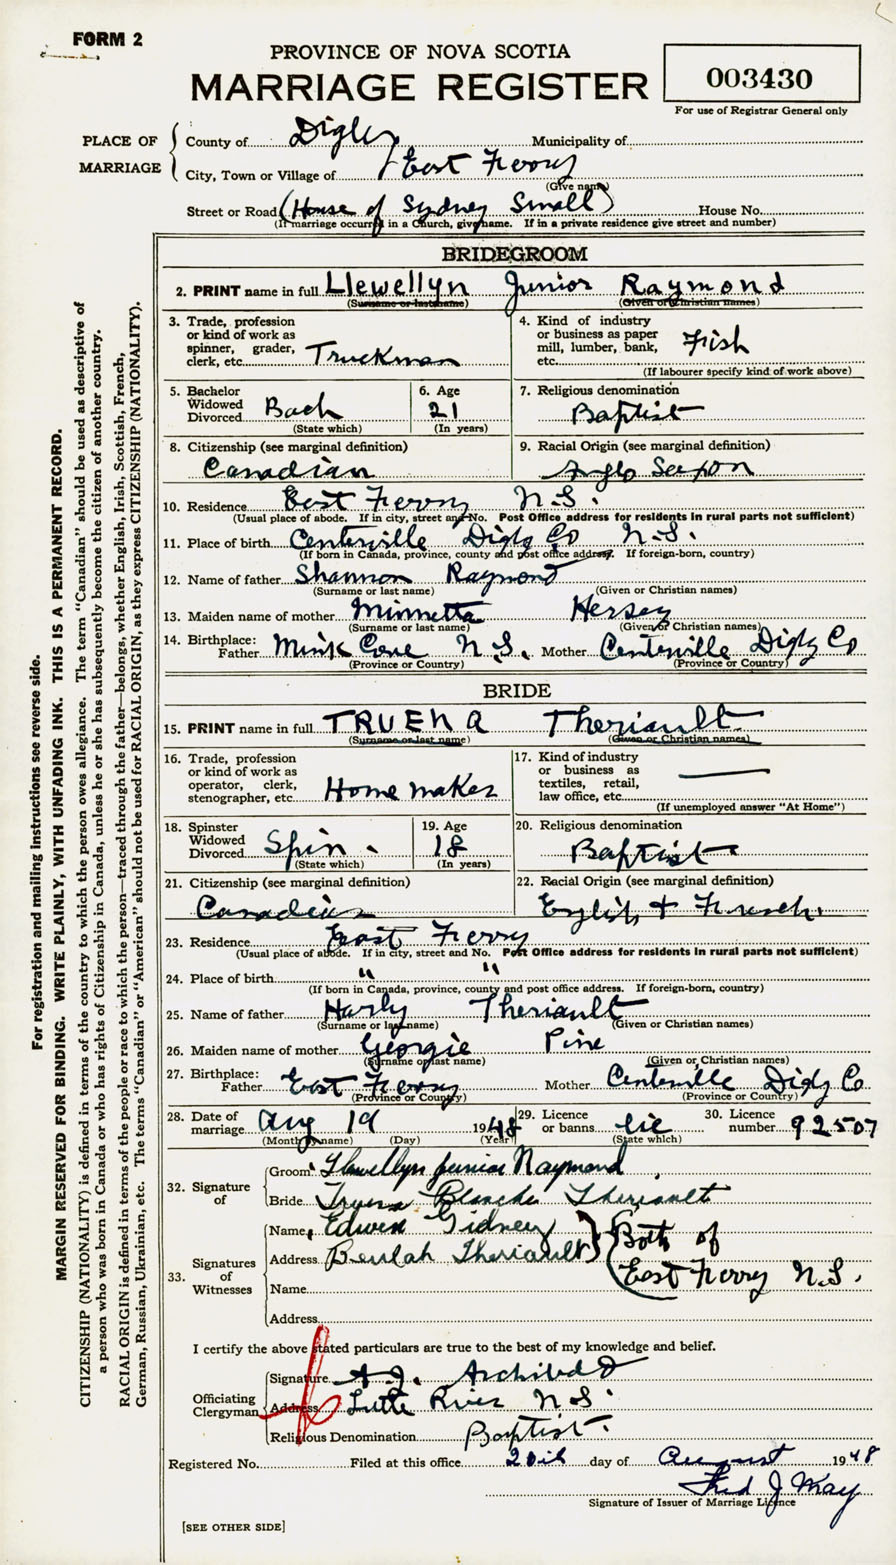 FORM 2
PROVINCE OF NOVA SCOTIA
MARRIAGE REGISTER
003430
For use of Registrar General only
PLACE OF MARRIAGE
County of Digby Municipality of
City, Town or Village of East Ferry
(Give name)
Street or Road (House of Sydney Small) House No.
(If marriage occurred in a Church, give name. If in a private residence give street and number)
BRIDEGROOM
2. PRINT name in full Llewellyn Junior Raymond
(Surname or last name) (Given or Christian names)
3. Trade, profession or kind of work as spinner, grader, clerk, etc. Truckman
4. Kind of industry or business as paper mill, lumber, bank, etc. Fish
(If labourer specify kind of work above)
5. Bachelor Widowed Divorced Bach
(State which)
6. Age 21
(In years)
7. Religious denomination
Baptist
8. Citizenship (see marginal definition)
Canadian
9. Racial Origin (see marginal definition)
Anglo Saxon
10. Residence East Ferry N.S.
(Usual place of abode. If in city, street and No. Post Office address for residents in rural parts not sufficient)
11. Place of birth Centerville Digby Co N.S.
(If born in Canada, province, county and post office address. If foreign-born, country)
12. Name of father Shannon Raymond
(Surname or last name) (Given or Christian names)
13. Maiden name of mother Minnetta Hersey
(Surname or last name) (Given or Christian names)
14. Birthplace:
Father Mink Cove N.S. Mother Centerville Digby Co
(Province or Country) (Province or Country)
BRIDE
15. PRINT name in full TRUENA Theriault
(Surname or last name) (Given or Christian names)
16. Trade, profession or kind of work as operator, clerk, stenographer, etc. Home maker
17. Kind of industry or business as textiles, retail, law office, etc. —
(If unemployed answer "At Home")
18. Spinster Widowed Divorced Spin.
(State which)
19. Age 18
(In years)
20. Religious denomination
Baptist
21. Citizenship (see marginal definition)
Canadian
22. Racial Origin (see marginal definition)
English + French
23. Residence East Ferry
(Usual place of abode. If in city, street and No. Post Office address for residents in rural parts not sufficient)
24. Place of birth " "
(If born in Canada, province, county and post office address. If foreign-born, country)
25. Name of father Harly Theriault
(Surname or last name) (Given or Christian names)
26. Maiden name of mother Georgie Pine
(Surname or last name) (Given or Christian names)
27. Birthplace:
Father East Ferry Mother Centerville Digby Co
(Province or Country) (Province or Country)
28. Date of marriage Aug 19 1948
(Month by name) (Day) (Year)
29. Licence or banns lic
(State which)
30. Licence number 92507
32. Signature of
Groom Llewellyn Junior Raymond
Bride Truena Blanche Theriault
33. Signatures of Witnesses
Name Edwin Gidney
Address Beulah Theriault
Both of East Ferry N.S.
Name
Address
I certify the above stated particulars are true to the best of my knowledge and belief.
Officiating Clergyman
Signature A. J. Archibald
Address Little River N.S.
Religious Denomination Baptist.
Registered No. Filed at this office 20th day of August 1948
Fred J May
Signature of Issuer of Marriage Licence
[SEE OTHER SIDE]
For registration and mailing instructions see reverse side.
MARGIN RESERVED FOR BINDING. WRITE PLAINLY, WITH UNFADING INK. THIS IS A PERMANENT RECORD.
CITIZENSHIP (NATIONALITY) is defined in terms of the country to which the person owes allegiance. The term "Canadian" should be used as descriptive of
a person who was born in Canada or who has rights of Citizenship in Canada, unless he or she has subsequently become the citizen of another country.
RACIAL ORIGIN is defined in terms of the people or race to which the person—traced through the father—belongs, whether English, Irish, Scottish, French,
German, Russian, Ukrainian, etc. The terms "Canadian" or "American" should not be used for RACIAL ORIGIN, as they express CITIZENSHIP (NATIONALITY).